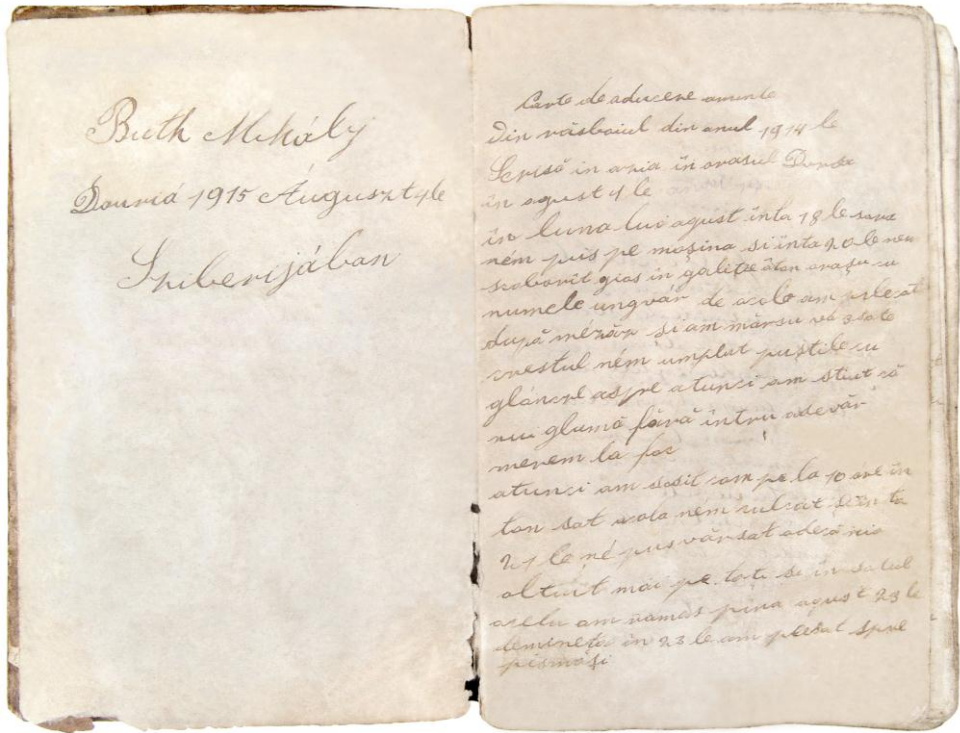 Buth Mihály
Dauriá 1915 Áuguszt 4 le
Sziberijában
Carte de aducere aminte
din răsboiul din anul 1914 le
Scrisă in azia în orasul
in agust 4 le
în luna lui agust înta 18 le sara
nem pus pe mașina si înta 20 le neu
scoborît gios in galiție orașu cu
numele ungvár de acolo am plecat
după si am
nem umplut puștile cu
gloncre aspre atunci am stiut că
nui glumă fără întru adevăr
merem la foc
atunci am sosit cam pe la 10 ore în
ton sat acolo nem culcat si în ta
21 le né pus vărsat adecă nia
altuit mai pe toti si in satul
acela am rămas pina agust 23 le
demineța in 23 le am plecat spre